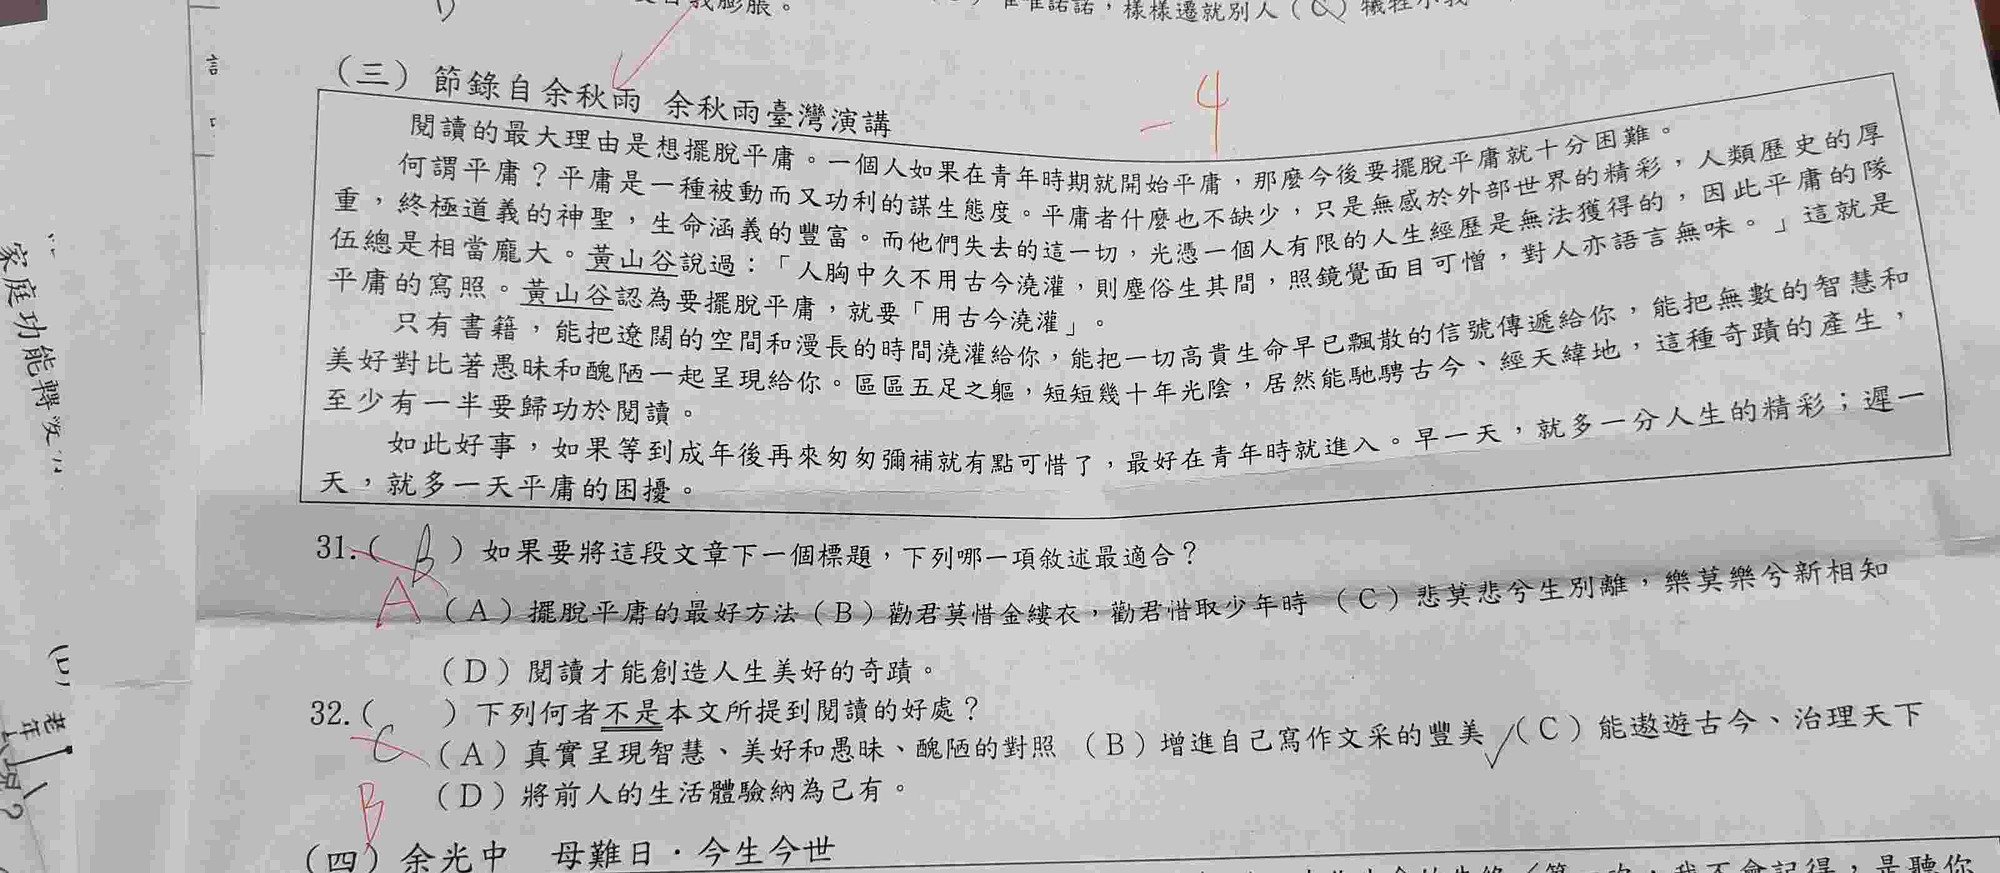 膨脹。
諾諾，樣樣遷就別人（
（三）節錄自余秋雨 余秋雨臺灣演講
-4
閱讀的最大理由是想擺脫平庸。一個人如果在青年時期就開始平庸，那麼今後要擺脫平庸就十分困難。
何謂平庸？平庸是一種被動而又功利的謀生態度。平庸者什麼也不缺少，只是無感於外部世界的精彩，人類歷史的厚
重，終極道義的神聖，生命涵義的豐富。而他們失去的這一切，光憑一個人有限的人生經歷是無法獲得的，因此平庸的隊
伍總是相當龐大。黃山谷說過：「人胸中久不用古今澆灌，則塵俗生其間，照鏡覺面目可憎，對人亦語言無味。」這就是
平庸的寫照。黃山谷認為要擺脫平庸，就要「用古今澆灌」。
只有書籍，能把遼闊的空間和漫長的時間澆灌給你，能把一切高貴生命早已飄散的信號傳遞給你，能把無數的智慧和
美好對比著愚昧和醜陋一起呈現給你。區區五足之軀，短短幾十年光陰，居然能馳騁古今、經天緯地，這種奇蹟的產生，
至少有一半要歸功於閱讀。
如此好事，如果等到成年後再來匆匆彌補就有點可惜了，最好在青年時就進入。早一天，就多一分人生的精彩；遲一
天，就多一天平庸的困擾。
31.（ B ）如果要將這段文章下一個標題，下列哪一項敘述最適合？
A （A）擺脫平庸的最好方法（B）勸君莫惜金縷衣，勸君惜取少年時 （C）悲莫悲兮生別離，樂莫樂兮新相知
（D）閱讀才能創造人生美好的奇蹟。
32.（ C ）下列何者不是本文所提到閱讀的好處？
（A）真實呈現智慧、美好和愚昧、醜陋的對照 （B）增進自己寫作文采的豐美 （C）能遨遊古今、治理天下
B （D）將前人的生活體驗納為己有。
（四）余光中 母難日．今生今世
家庭功能轉
(D)